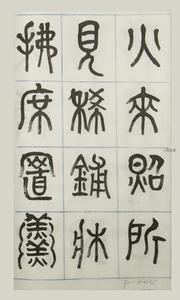 火來照所
見稀鋪牀
拂席置羹